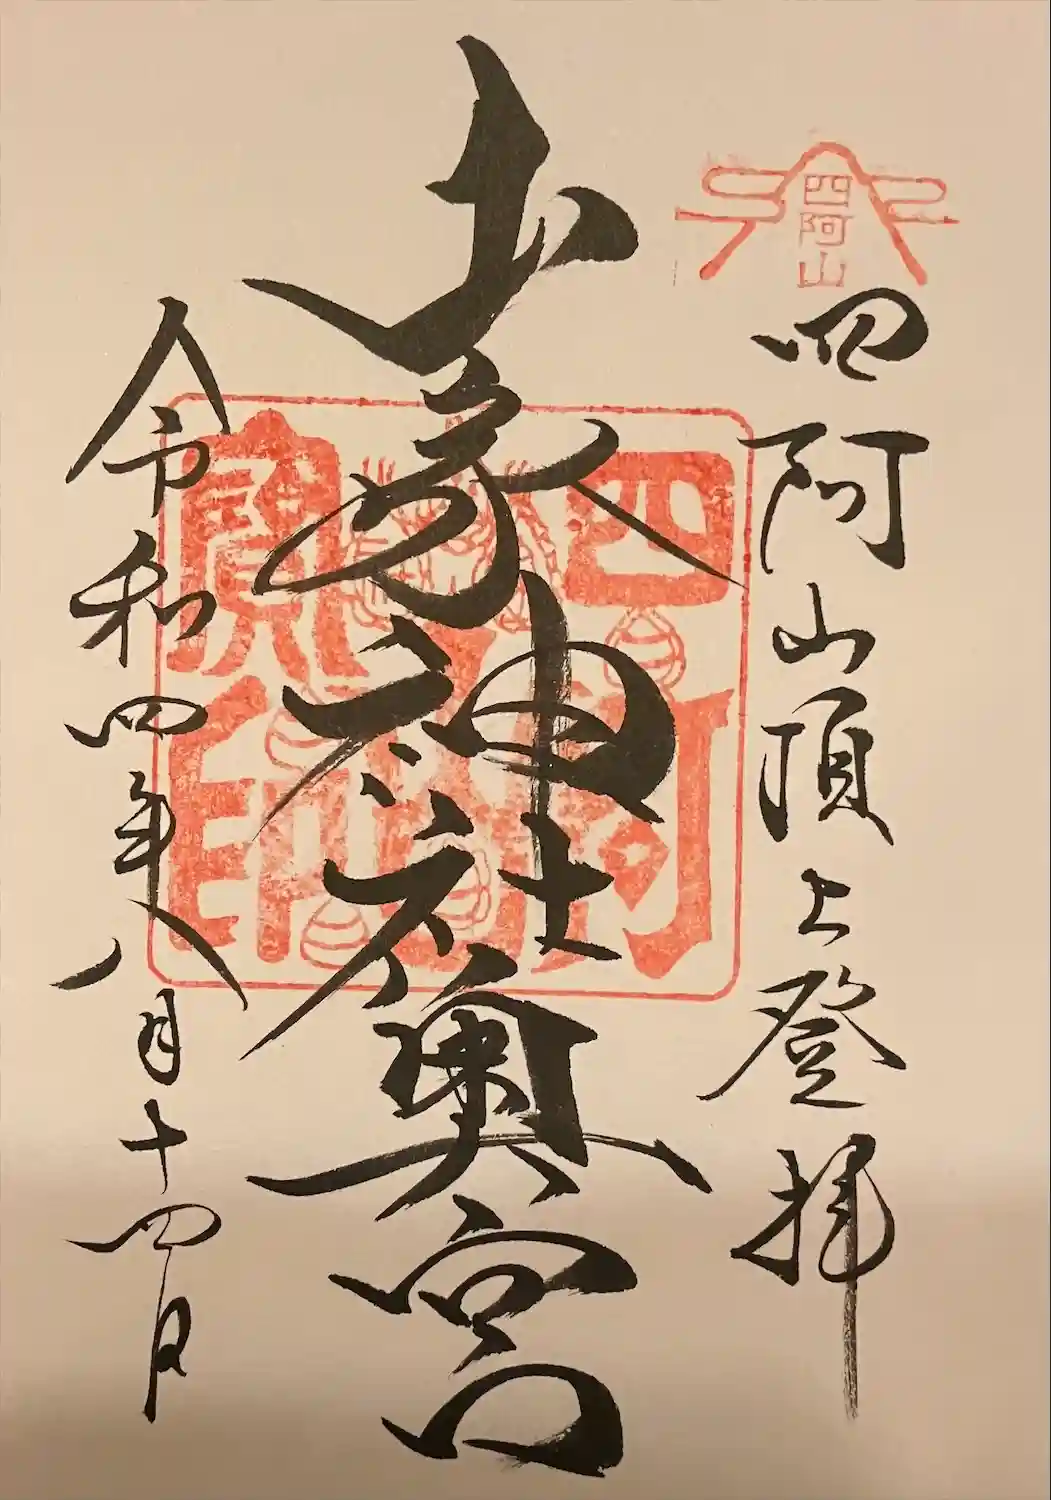 四阿山
四阿山頂上登拝
山家神社奥宮
四阿山寶印
令和四年八月十四日